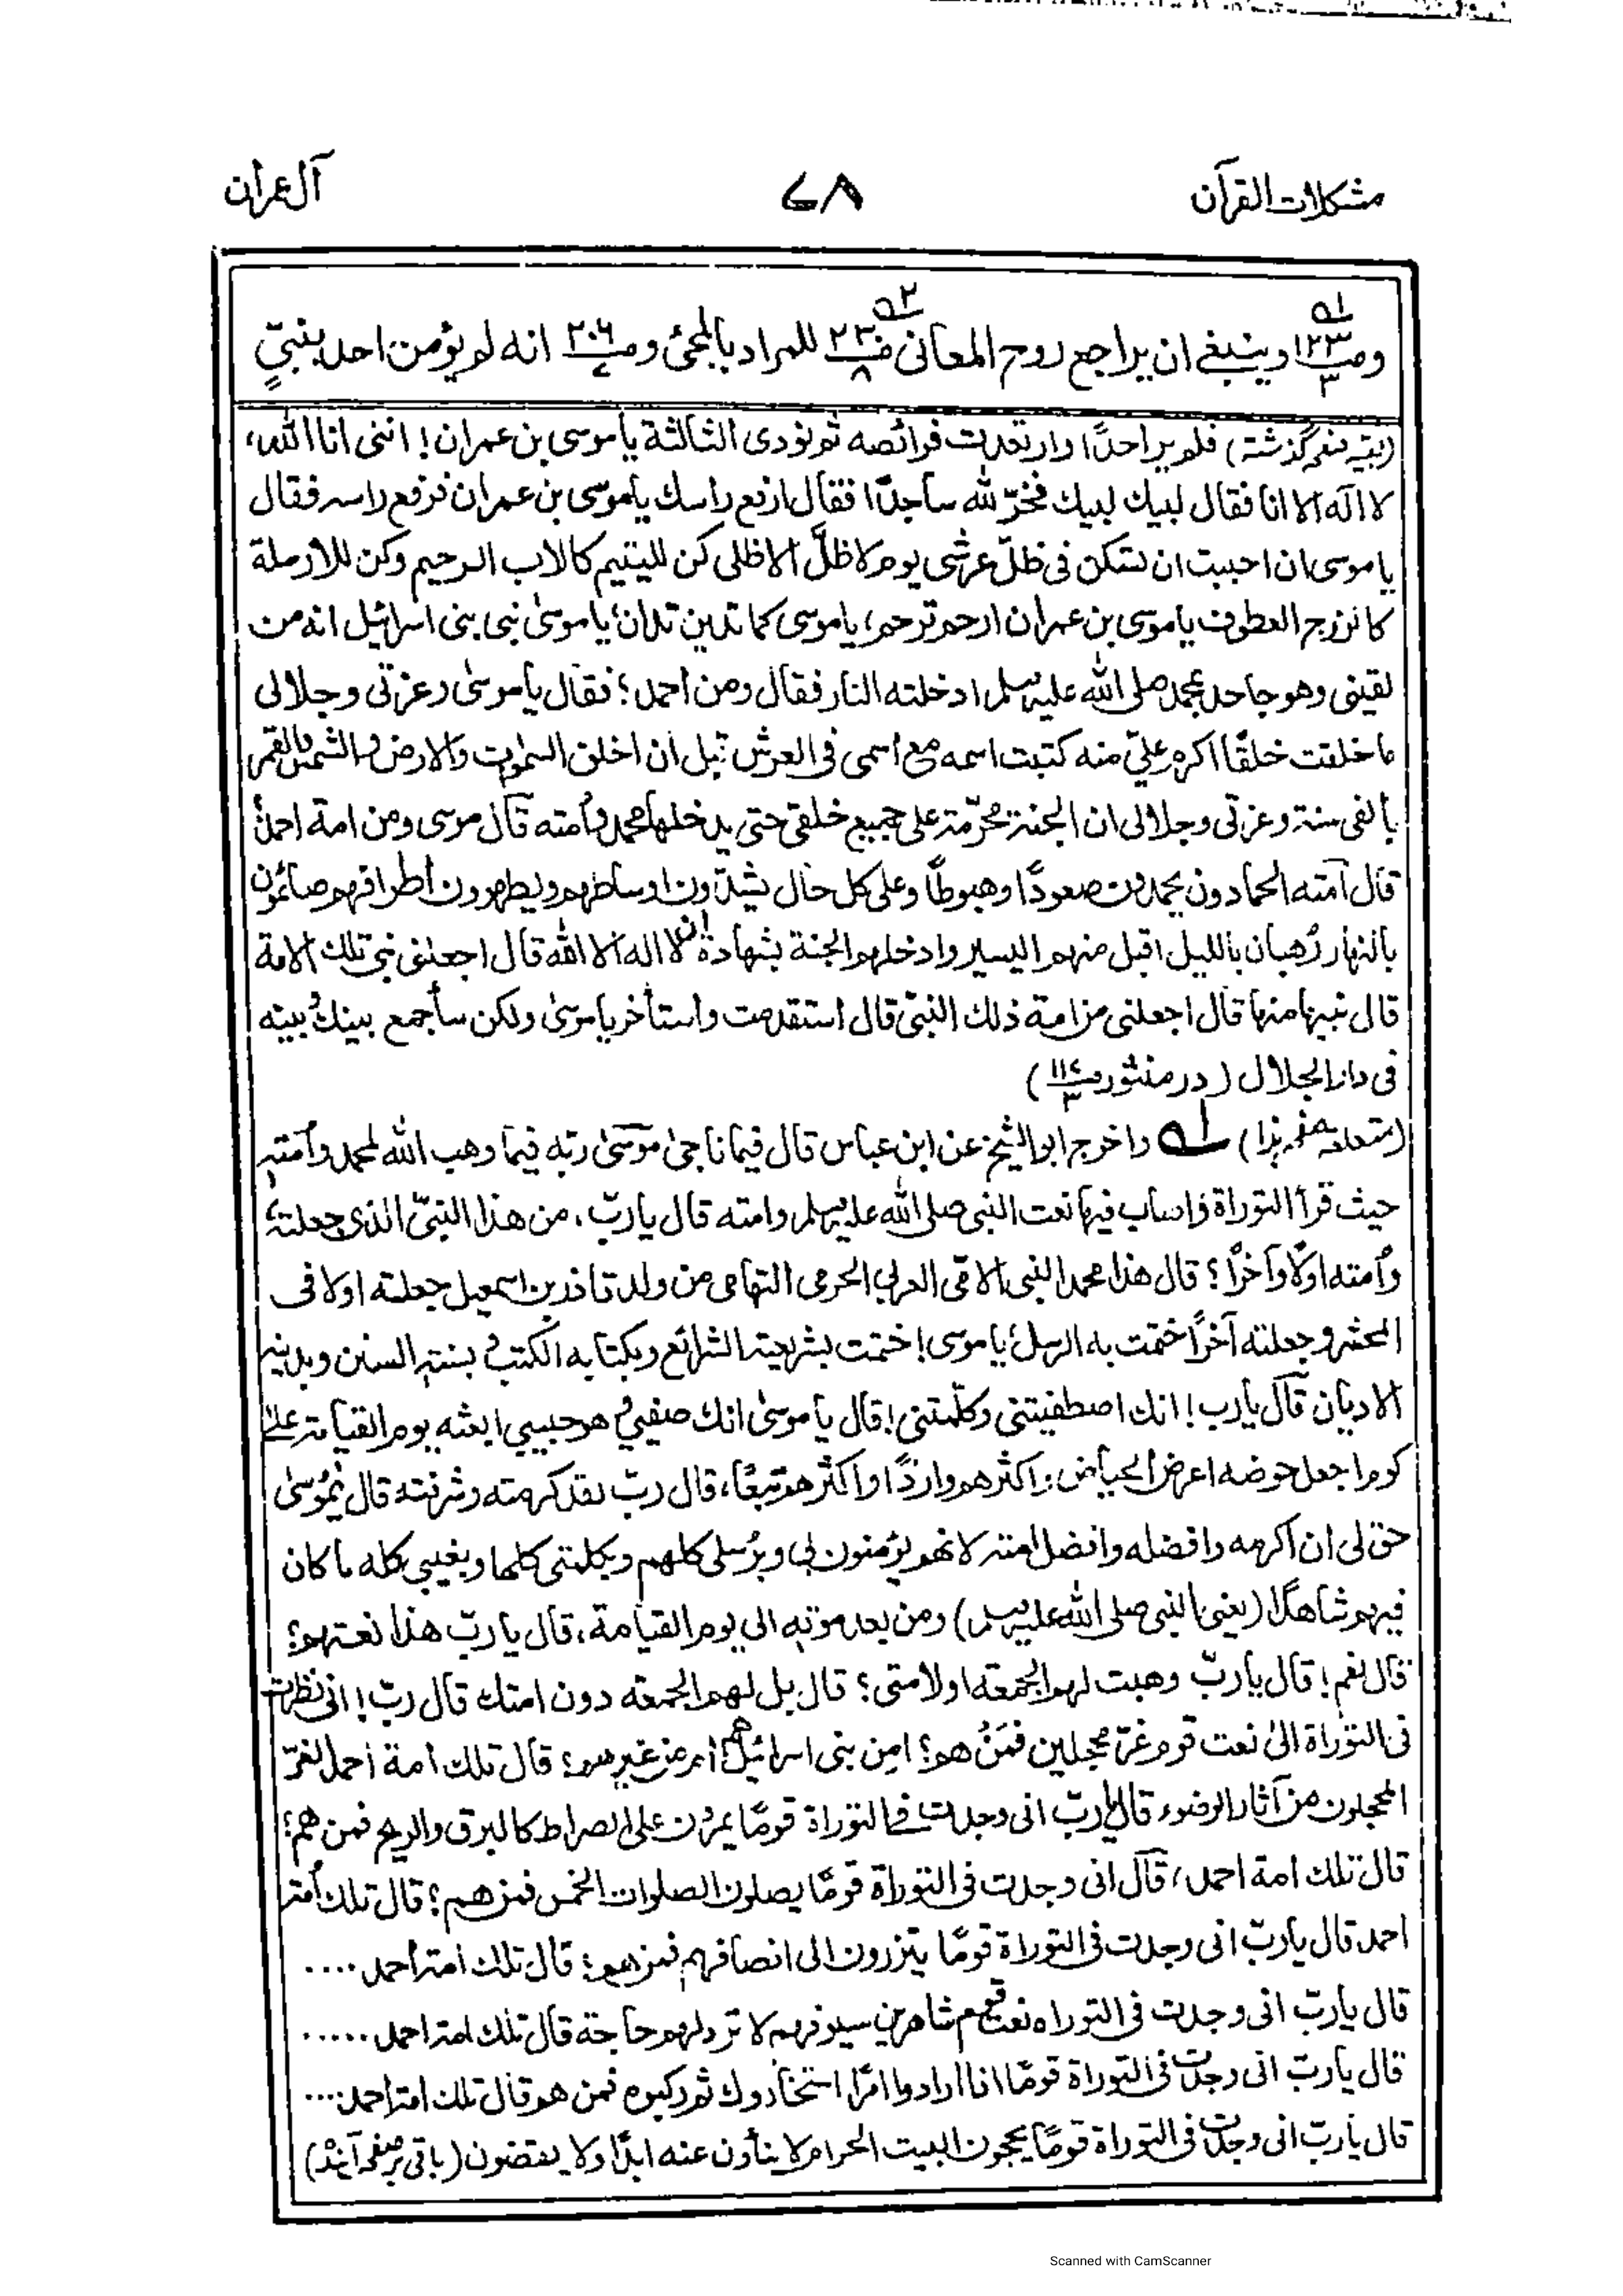 مشکلات القرآن
٧٨
آل عمران
و ص١٢٣/٣ وینبغی ان یراجع روح المعانی ص٢٣/٨ للمراد بالمجئ و ص٢٠٦/٤ انه لم یؤمن احد بنبیٍّ
(بقیہ صفحہ گذشتہ) فلم یر احدًا وارتعدت فرائصه ثم نودی الثالثة یا موسی بن عمران! اننی انا الله،
لا اله الا انا فقال لبیك لبیك فخرّ لله ساجدًا فقال ارفع راسك یا موسی بن عمران فرفع راسه فقال
یا موسی ان احببت ان تسکن فی ظلّ عرشی یوم لا ظلّ الا ظلی کن للیتیم کالاب الرحیم وکن للارملة
کالزوج العطوف یا موسی بن عمران ارحم ترحم، یا موسی کما تدین تدان، یا موسیٰ نبی بنی اسرائیل انه من
لقینی وهو جاحد بمحمد صلی الله علیہ وسلم ادخلته النار فقال ومن احمد؟ فقال یا موسیٰ وعزتی وجلالی
ما خلقت خلقًا اکرم علیّ منه کتبت اسمه مع اسمی فی العرش قبل ان اخلق السموٰت والارض والشمس والقمر
بالفی سنة وعزتی وجلالی ان الجنة محرّمة علی جمیع خلقی حتی یدخلها محمد وأمته قال موسی ومن امة احمد؟
قال أمته الحمادون یحمدون صعودًا وهبوطًا وعلی کل حال یشدّون اوساطهم ویطهرون أطرافهم صائمون
بالنهار رُهبان باللیل اقبل منهم الیسیر وادخلهم الجنة بشهادة ان لا اله الا الله قال اجعلنی نبی تلك الامة
قال نبیها منها قال اجعلنی من امة ذلك النبیّ قال استقدمت واستأخر یا موسیٰ ولکن سأجمع بینك وبینه
فی دار الجلال (در منثور ص١١٤/٣)
(متعلقہ صفحہ ہذا) ١ه واخرج ابو الشیخ عن ابن عباس قال فیما ناجیٰ موسیٰ ربه فیما وهب الله لمحمد وأمته
حیث قرأ التوراة واصاب فیها نعت النبی صلی الله علیہ وسلم وامته قال یا ربّ، من هذا النبیّ الذی جعلته
وأمته اولًا وآخرًا؟ قال هذا محمد النبی الامّی العربی الحرمی التهامی من ولد قاذر بن اسمعیل جعلته اولا فی
المحشر وجعلته آخرًا ختمت به الرسل، یا موسی! ختمت بشریعته الشرائع وبکتابه الکتب وبسنته السنن وبدینه
الادیان قال یا رب! انك اصطفیتنی وکلّمتنی! قال یا موسیٰ انك صفیی وهو حبیبی ابعثه یوم القیامة علیٰ
کوم اجعل حوضه اعرض الحیاض، واکثرهم واردًا واکثرهم تبعًا، قال ربّ لقد کرمته وشرفته قال یٰموسیٰ
حق لی ان اکرمه وافضله وافضل امته لانهم یؤمنون بی وبرُسلی کلهم وبکلمتی کلها وبغیبی کله ما کان
فیهم شاهدًا (یعنی النبی صلی الله علیہ وسلم) ومن بعد موته الی یوم القیامة، قال یا ربّ هذا نعتهم؟
قال نعم! قال یا ربّ وهبت لهم الجمعة او لامتی؟ قال بل لهم الجمعة دون امتك قال ربّ! انی نظرت
فی التوراة الیٰ نعت قوم غرّ محجلین فمَنْ هم؟ امِن بنی اسرائیل هم ام من غیرهم؟ قال تلك امة احمد الغرّ
المحجلون من آثار الوضوء قال یا ربّ انی وجدت فی التوراة قومًا یمرون علی الصراط کالبرق والریح فمن هم؟
قال تلك امة احمد، قال انی وجدت فی التوراة قومًا یصلون الصلوات الخمس فمن هم؟ قال تلك أمة
احمد قال یا ربّ انی وجدت فی التوراة قومًا یتزرون الی انصافهم فمن هم؟ قال تلك امة احمد ....
قال یا ربّ انی وجدت فی التوراة نعت قوم شاهرین سیوفهم لا ترد لهم حاجة قال تلك امة احمد .....
قال یا ربّ انی وجدت فی التوراة قومًا اذا ارادوا امرًا استخاروك ثم رکبوه فمن هم قال تلك امة احمد ...
قال یا ربّ انی وجدت فی التوراة قومًا یحجون البیت الحرام لا ینأون عنه ابدًا ولا یقضون (باقی بر صفحہ آئندہ)
Scanned with CamScanner